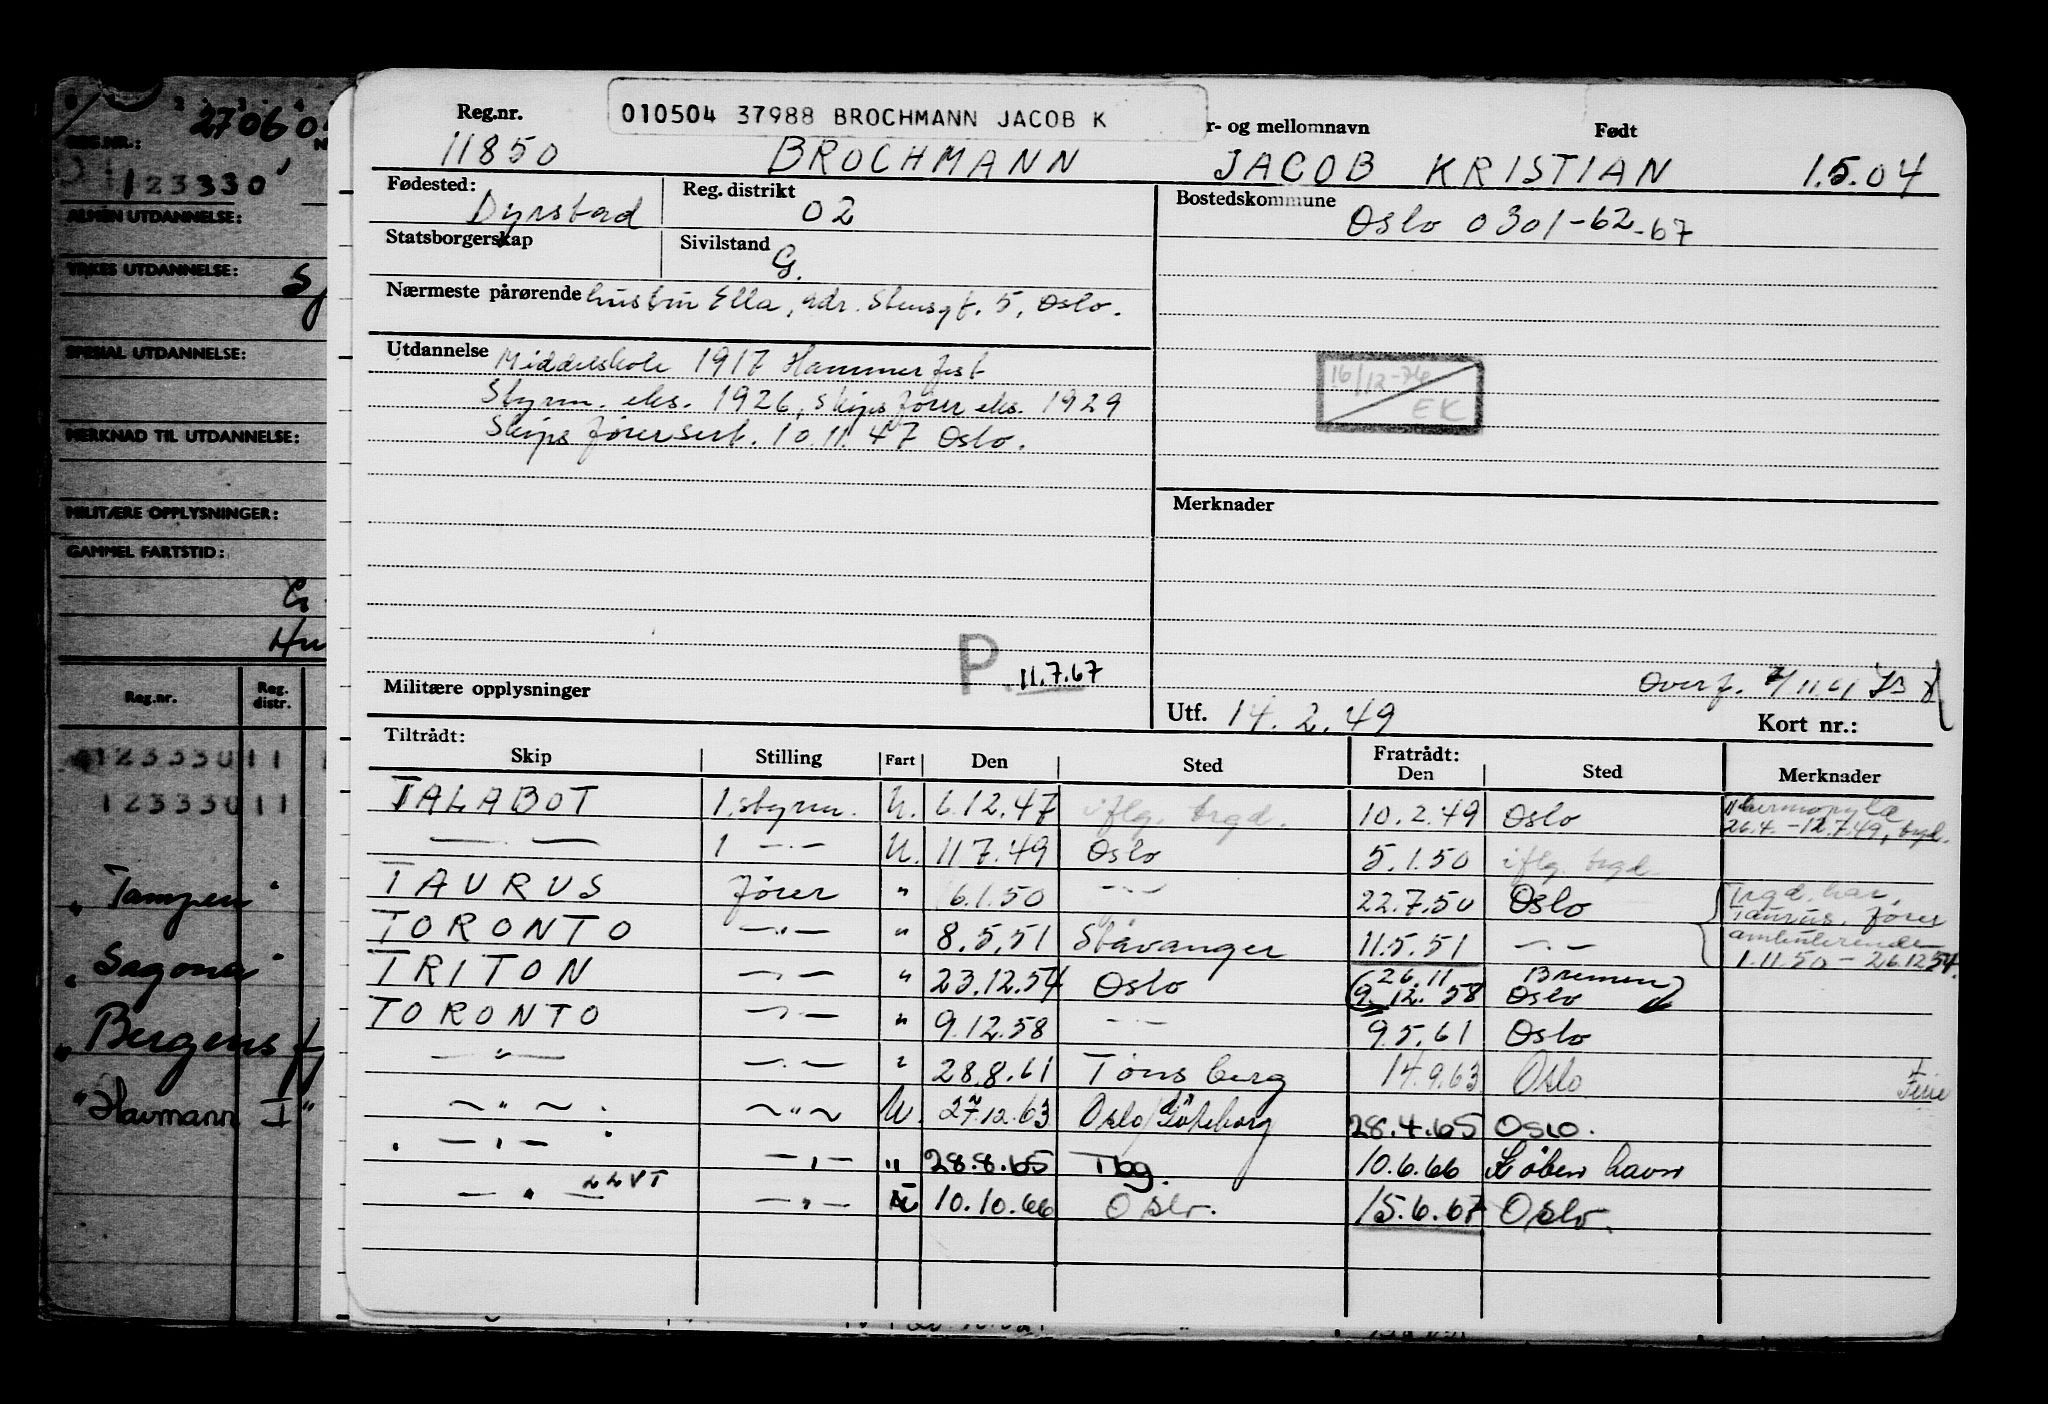 27060
REG.NR.:
123330
ALMEN UTDANNELSE:
YRKES UTDANNELSE:
SPESIAL UTDANNELSE:
MERKNAD TIL UTDANNELSE:
MILITÆRE OPPLYSNINGER:
GAMMEL FARTSTID:
Reg.nr. Reg. distr.
123330 11
123330 11
„ Tampen "
„ Sagona "
„ Bergens f
" Havmann I "
010504 37988 BROCHMANN JACOB K
Reg.nr. r- og mellomnavn Født
11850 BROCHMANN JACOB KRISTIAN 1.5.04
Fødested: Dyrstad Reg. distrikt 02 Bostedskommune Oslo 0301-62-67
Statsborgerskap Sivilstand G.
Nærmeste pårørende hustru Ella, adr. Stensgt. 5, Oslo.
Utdannelse Middelskole 1917 Hammerfest
Styrm. eks. 1926, skipsfører eks. 1929
Skipsførersert. 10.11.47 Oslo.
16/12-76
EK
Merknader
P. 11.7.67
Overf.
Militære opplysninger
Utf. 14.2.49 Kort nr.:
Tiltrådt: Fratrådt:
Skip Stilling Fart Den Sted Den Sted Merknader
TALABOT 1.styrm. U. 6.12.47 iflg. trgd. 10.2.49 Oslo Thermopylæ 26.4.-12.7.49, trgd.
— — 1 —.— U. 11 7.49 Oslo 5.1.50 iflg. trgd
TAURUS fører " 6.1.50 —.— 22.7.50 Oslo Trgd. har, Taurus, fører
TORONTO —"— " 8.5.51 Stavanger 11.5.51 —.— ambulerende 1.11.50 - 26.12.54.
TRITON —"— " 23.12.54 Oslo (26.11 Bremen)
9.12.58 Oslo
TORONTO —"— " 9.12.58 —.— 9.5.61 Oslo
—"— —"— " 28.8.61 Tønsberg 14.9.63 Oslo Ferie
—"— —"— U. 27.12.63 Oslo/Göteborg 28.4.65 Oslo.
—"— —"— " 28.8.65 Tbg. 10.6.66 København
—"— —"— U 10.10.66 Oslo. 15.6.67 Oslo.